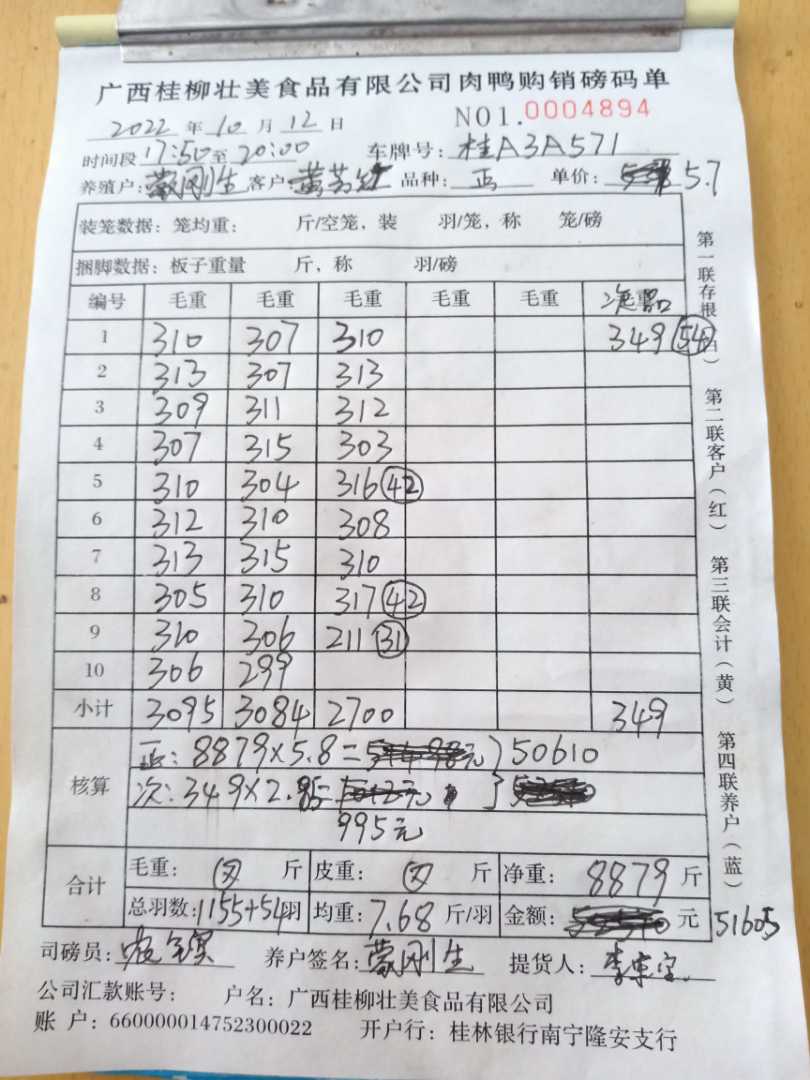 广西桂柳壮美食品有限公司肉鸭购销磅码单
2022 年 10 月 12 日 NO1.0004894
时间段 17:50 至 20:00 车牌号: 桂A3A571
养殖户: 蒙刚生 客户: 黄 品种: 正 单价: 5.7
装笼数据: 笼均重: 斤/空笼, 装 羽/笼, 称 笼/磅
捆脚数据: 板子重量 斤, 称 羽/磅
编号 毛重 毛重 毛重 毛重 毛重 次品
1 310 307 310 349 54
2 313 307 313
3 309 311 312
4 307 315 303
5 310 304 316 42
6 312 310 308
7 313 315 310
8 305 310 317 42
9 310 306 211 31
10 306 299
小计 3095 3084 2700 349
核算 正: 8879×5.8= 元 } 50610
次: 349×2.85= 元
995元
合计 毛重: 斤 皮重: 斤 净重: 8879 斤
总羽数: 1155+54 羽 均重: 7.68 斤/羽 金额: 元 51605
司磅员: 养户签名: 蒙刚生 提货人: 李
公司汇款账号: 户名: 广西桂柳壮美食品有限公司
账 户: 660000014752300022 开户行: 桂林银行南宁隆安支行
第一联存根(白) 第二联客户(红) 第三联会计(黄) 第四联养户(蓝)